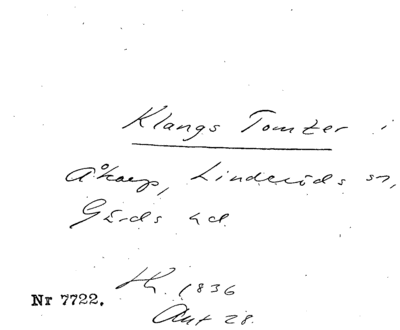 Klangs Tomter i
Åkarp, Linderöds sn,
Gärds hd.
Th. 1836
Ant 28.
Nr 7722.